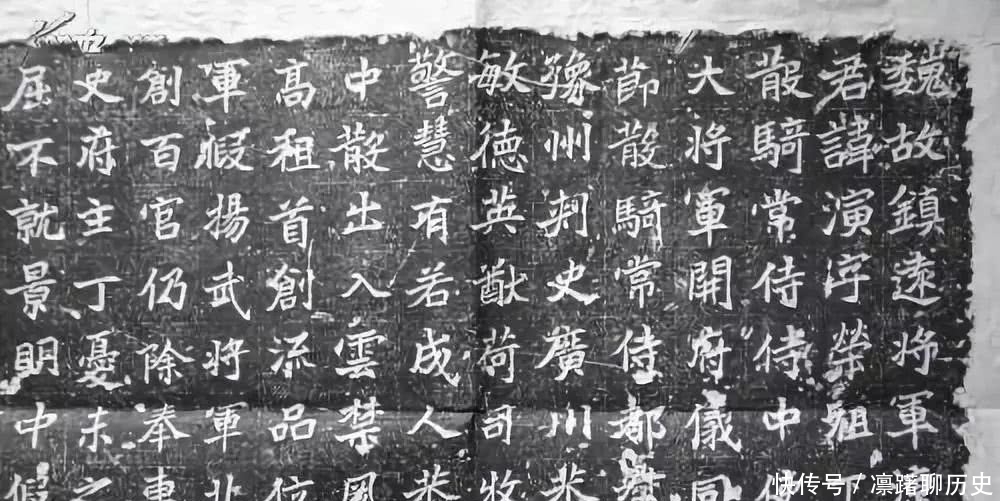 魏故鎮遠將軍
君諱演字榮祖
散騎常侍侍中
大將軍開府儀同
節散騎常侍都
豫州刺史廣川
敏德英猷荷司牧
警慧有若成人
中散出入雲禁
高祖首創流品位
軍假揚武將軍北
創百官仍除奉車
史府主丁憂未
屈不就景明中假
快传号/凛躇聊历史